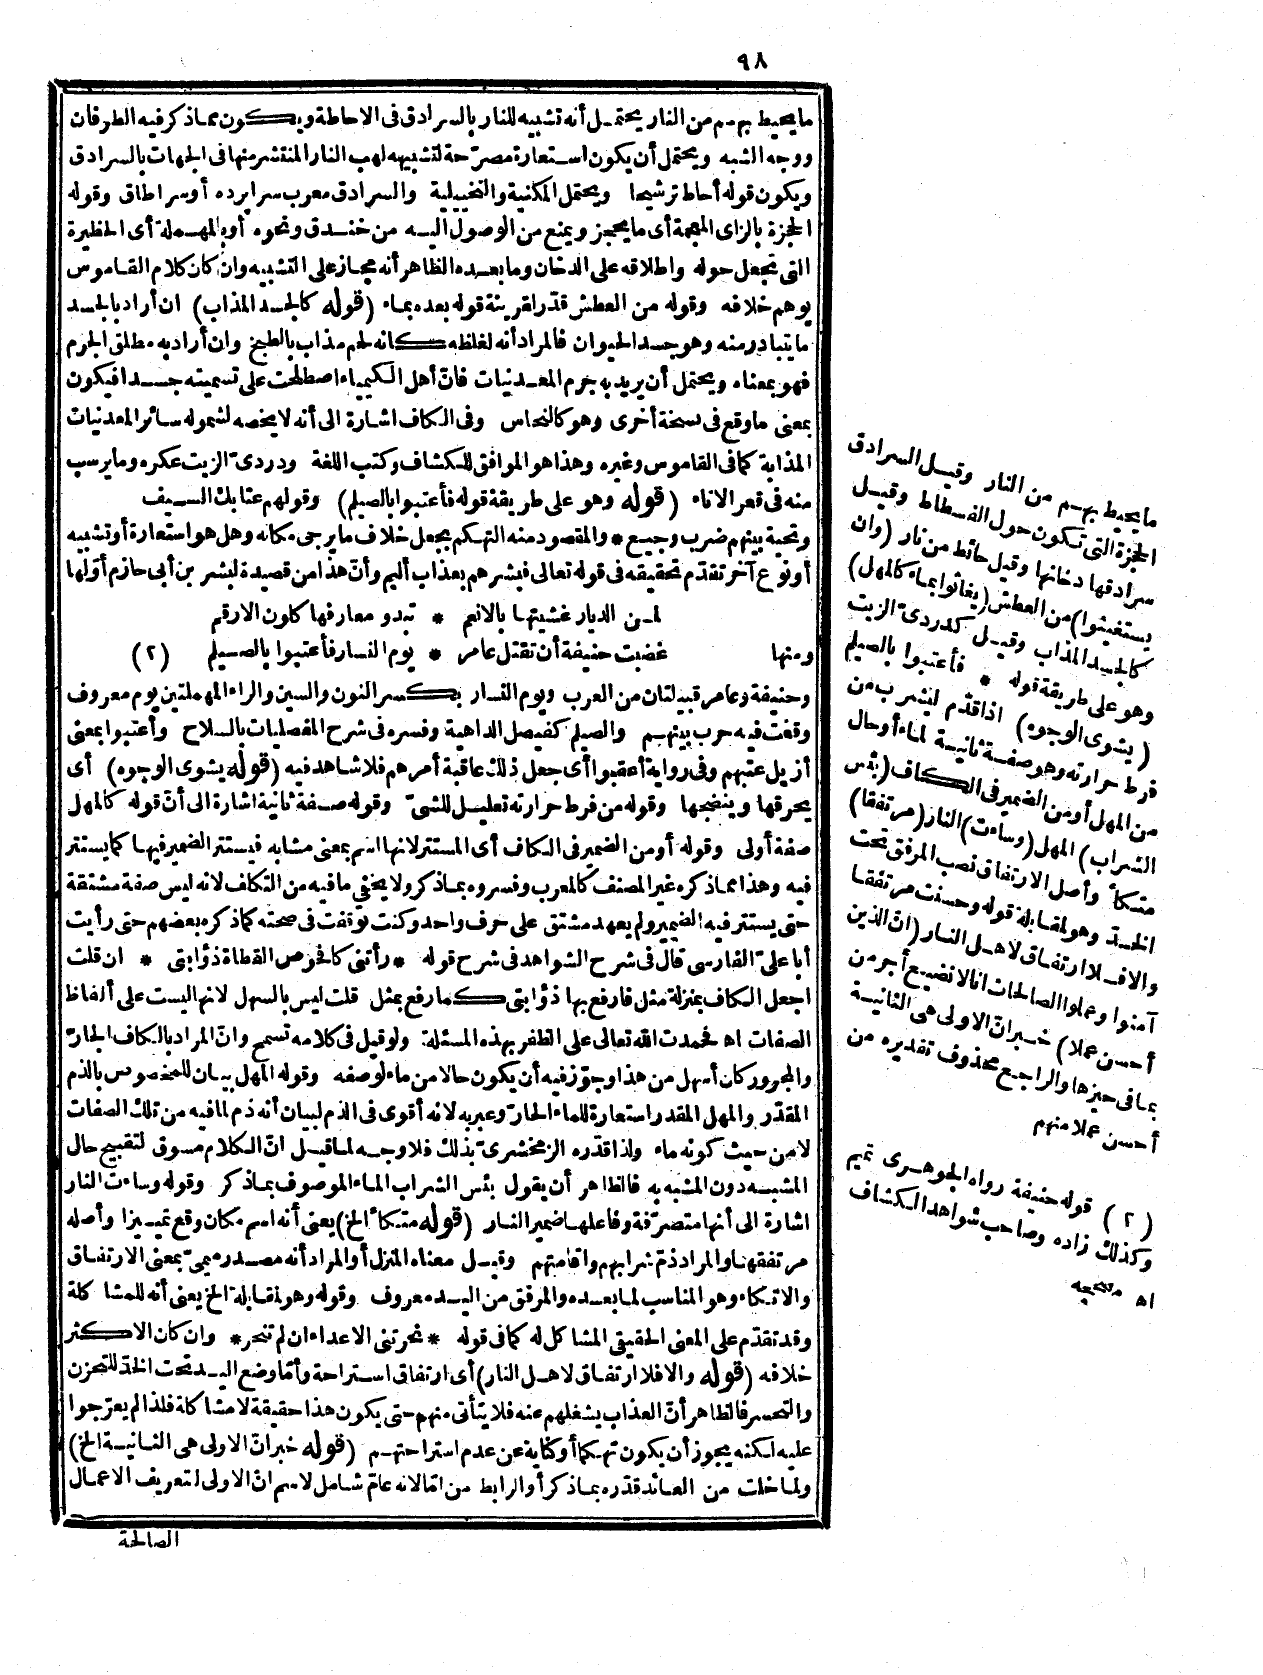 ٩٨
ما يحيط بهم من النار يحتمل أنه تشبيه للنار بالسرادق فى الاحاطة ويكون مما ذكر فيه الطرفان
ووجه الشبه ويحتمل أن يكون استعارة مصرّحة لتشبيه لهب النار المنتشر منها فى الجهات بالسرادق
ويكون قوله أحاط ترشيحا ويحتمل المكنية والتخييلية والسرادق معرب سرايرده أو سراطاق وقوله
الحجزة بالزاى المعجمة أى ما يحجز ويمنع من الوصول اليه من خندق ونحوه أو بالمهملة أى الحظيرة
التى تجعل حوله واطلاقه على الدخان وما بعده الظاهر أنه مجاز على التشبيه وان كان كلام القاموس
يوهم خلافه وقوله من العطش قدّر لقرينة قوله بعده بماء (قوله كالجسد المذاب) ان أراد بالجسد
ما يتبادر منه وهو جسد الحيوان فالمراد أنه لغلظه كانه لحم مذاب بالطبخ وان أراد به مطلق الجرم
فهو بمعناه ويحتمل أن يريد به جرم المعدنيات فانّ أهل الكيمياء اصطلحت على تسميته جسدا فيكون
بمعنى ما وقع فى نسخة أخرى وهو كالنحاس وفى الكاف اشارة الى أنه لا يخصه لشموله سائر المعدنيات
المذابة كما فى القاموس وغيره وهذا هو الموافق للكشاف وكتب اللغة ودردىّ الزيت عكره وما يرسب
منه فى قعر الاناء (قوله وهو على طريقة قوله فأعتبوا بالصيلم) وقولهم عتابك السيف
وتحية بينهم ضرب وجيع * والمقصود منه التهكم بجعل خلاف ما يرجى مكانه وهل هو استعارة أو تشبيه
أو نوع آخر تقدّم تحقيقه فى قوله تعالى فبشرهم بعذاب أليم وأنّ هذا من قصيدة لبشر بن أبى حازم أوّلها
لمن الديار غشيتها بالانعم * تبدو معارفها كلون الارقم
ومنها غضبت حنيفة أن تقتل عامر * يوم النسار فأعتبوا بالصيلم (٢)
وحنيفة وعامر قبيلتان من العرب ويوم النسار بكسر النون والسين والراء المهملتين يوم معروف
وقعت فيه حرب بينهم والصيلم كفيصل الداهية وفسره فى شرح المفضليات بالسلاح وأعتبوا بمعنى
أزيل عتبهم وفى رواية أعقبوا أى جعل ذلك عاقبة أمرهم فلا شاهد فيه (قوله يشوى الوجوه) أى
يحرقها وينضجها وقوله من فرط حرارته تعليل للشىّ وقوله صفة ثانية اشارة الى أنّ قوله كالمهل
صفة أولى وقوله أو من الضمير فى الكاف أى المستتر لانها اسم بمعنى مشابه فيستتر الضمير فيها كما يستتر
فيه وهذا مما ذكره غير المصنف كالمعرب وفسروه بما ذكر ولا يخفى ما فيه من التكلف لانه ليس صفة مشتقة
حتى يستتر فيه الضمير ولم يعهد مشتق على حرف واحد وكنت توقفت فى صحته كما ذكره بعضهم حتى رأيت
أبا علىّ الفارسى قال فى شرح الشواهد فى شرح قوله * رأتنى كافحوص القطاة ذؤابتى * ان قلت
اجعل الكاف بمنزلة مثل فارفع بها ذؤابتى كما رفع بمثل قلت ليس بالسهل لانها ليست على ألفاظ
الصفات اه فحمدت الله تعالى على الظفر بهذه المسئلة ولو قيل فى كلامه تسمح وانّ المراد بالكاف الجارّ
والمجرور كان أسهل من هذا وجوّز فيه أن يكون حالا من ماء لوصفه وقوله المهل بيان للمخصوص بالذم
المقدّر والمهل المقدر استعارة للماء الحارّ وعبر به لانه أقوى فى الذم لبيان أنه ذم لما فيه من تلك الصفات
لا من حيث كونه ماء ولذا قدّره الزمخشرىّ بذلك فلا وجه لما قيل انّ الكلام مسوق لتقبيح حال
المشبه دون المشبه به فالظاهر أن يقول بئس الشراب الماء الموصوف بما ذكر وقوله وساءت النار
اشارة الى أنها متصرّفة وفاعلها ضمير النار (قوله متكأ الخ) يعنى أنه اسم مكان وقع تمييزا وأصله
مرتفقها والمراد ذم شرابهم واقامتهم وقيل معناه المنزل أو المراد أنه مصدر ميمىّ بمعنى الارتفاق
والاتكاء وهو المناسب لما بعده والمرفق من اليد معروف وقوله وهو لمقابلة الخ يعنى أنه للمشاكلة
وقد تقدّم على المعنى الحقيقى المشاكل له كما فى قوله * نحرتنى الاعداء ان لم تنحر * وان كان الاكثر
خلافه (قوله والا فلا ارتفاق لاهل النار) أى ارتفاق استراحة وأمّا وضع اليد تحت الخدّ للتحزن
والتحسر فالظاهر أنّ العذاب يشغلهم عنه فلا يتأتى منهم حتى يكون هذا حقيقة لا مشاكلة فلذا لم يعرّجوا
عليه لكنه يجوز أن يكون تهكما أو كناية عن عدم استراحتهم (قوله خبر انّ الاولى هى الثانية الخ)
ولما خلت من العائد قدّره بما ذكر أو الرابط من امّا لانه عامّ شامل لاسم انّ الاولى لتعريف الاعمال
الصالحة
ما يحيط بهم من النار وقيل السرادق
الحجزة التى تكون حول الفسطاط وقيل
سرادقها دخانها وقيل حائط من نار (وان
يستغيثوا) من العطش (يغاثوا بماء كالمهل)
كالجسد المذاب وقيل كدردىّ الزيت
وهو على طريقة قوله * فأعتبوا بالصيلم
(يشوى الوجوه) اذا قدّم ليشرب من
فرط حرارته وهو صفة ثانية لماء أو حال
من المهل أو من الضمير فى الكاف (بئس
الشراب) المهل (وساءت) النار (مرتفقا)
متكأ وأصل الارتفاق نصب المرفق تحت
الخدّ وهو لمقابلة قوله وحسنت مرتفقا
والا فلا ارتفاق لاهل النار (انّ الذين
آمنوا وعملوا الصالحات انا لا نضيع أجر من
أحسن عملا) خبر انّ الاولى هى الثانية
بما فى حيزها والراجع محذوف تقديره من
أحسن عملا منهم
(٢) قوله حنيفة رواه الجوهرى تميم
وكذلك زاده وصاحب شواهد الكشاف
اه مصححه